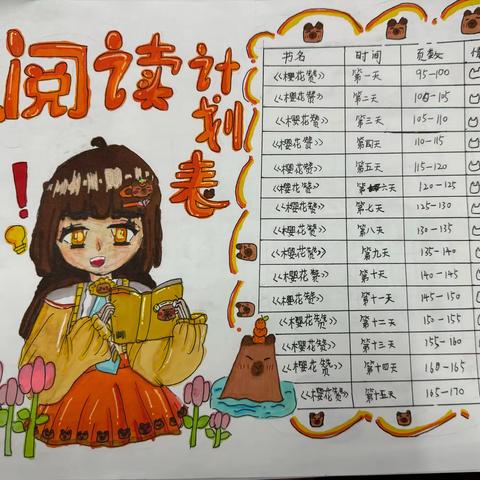 阅读计划表
书名 时间 页数
《樱花赞》 第一天 95-100
《樱花赞》 第二天 100-105
《樱花赞》 第三天 105-110
《樱花赞》 第四天 110-115
《樱花赞》 第五天 115-120
《樱花赞》 第六天 120-125
《樱花赞》 第七天 125-130
《樱花赞》 第八天 130-135
《樱花赞》 第九天 135-140
《樱花赞》 第十天 140-145
《樱花赞》 第十一天 145-150
《樱花赞》 第十二天 150-155
《樱花赞》 第十三天 155-160
《樱花赞》 第十四天 160-165
《樱花赞》 第十五天 165-170